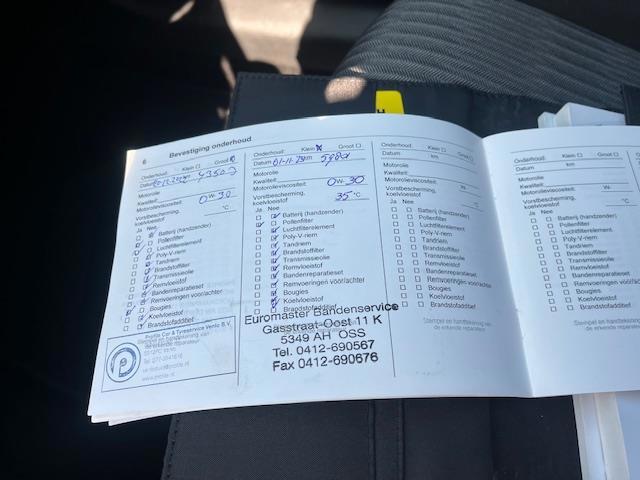 6 Bevestiging onderhoud
Onderhoud: Klein Groot
Datum km
Motorolie
Kwaliteit:
Motorolieviscositeit: 0W-30
Vorstbescherming, koelvloeistof °C
Ja Nee
Batterij (handzender)
Pollenfilter
Luchtfilterelement
Poly V-riem
Tandriem
Brandstoffilter
Transmissieolie
Remvloeistof
Bandenreparatieset
Remvoeringen vóór/achter
Bougies
Koelvloeistof
Brandstofadditief
Stempel en handtekening van
de erkende reparateur
Profile Car & Tyreservice Venlo B.V.
www.profile.nl
Onderhoud: Klein X Groot
Datum 01-11-23 km
Motorolie
Kwaliteit:
Motorolieviscositeit: 0W-30
Vorstbescherming,
koelvloeistof 35°C
Ja Nee
Batterij (handzender)
Pollenfilter
Luchtfilterelement
Poly-V-riem
Tandriem
Brandstoffilter
Transmissieolie
Remvloeistof
Bandenreparatieset
Remvoeringen vóór/achter
Bougies
Koelvloeistof
Brandstofadditief
Euromaster Bandenservice
Gasstraat-Oost 11 K
5349 AH OSS
Tel. 0412-690567
Fax 0412-690676
Onderhoud: Klein Groot
Datum km
Motorolie
Kwaliteit:
Motorolieviscositeit: W-
Vorstbescherming,
koelvloeistof °C
Ja Nee
Batterij (handzender)
Pollenfilter
Luchtfilterelement
Poly-V-riem
Tandriem
Brandstoffilter
Transmissieolie
Remvloeistof
Bandenreparatieset
Remvoeringen vóór/achter
Bougies
Koelvloeistof
Brandstofadditief
Stempel en handtekening van
de erkende reparateur
Onderhoud: Klein Groot
Datum km
Motorolie
Kwaliteit:
Motorolieviscositeit: W-
Vorstbescherming,
koelvloeistof °C
Ja Nee
Batterij (handzender)
Pollenfilter
Luchtfilterelement
Poly-V-riem
Tandriem
Brandstoffilter
Transmissieolie
Remvloeistof
Bandenreparatieset
Remvoeringen vóór/achter
Bougies
Koelvloeistof
Brandstofadditief
Stempel en handtekening van
de erkende reparateur